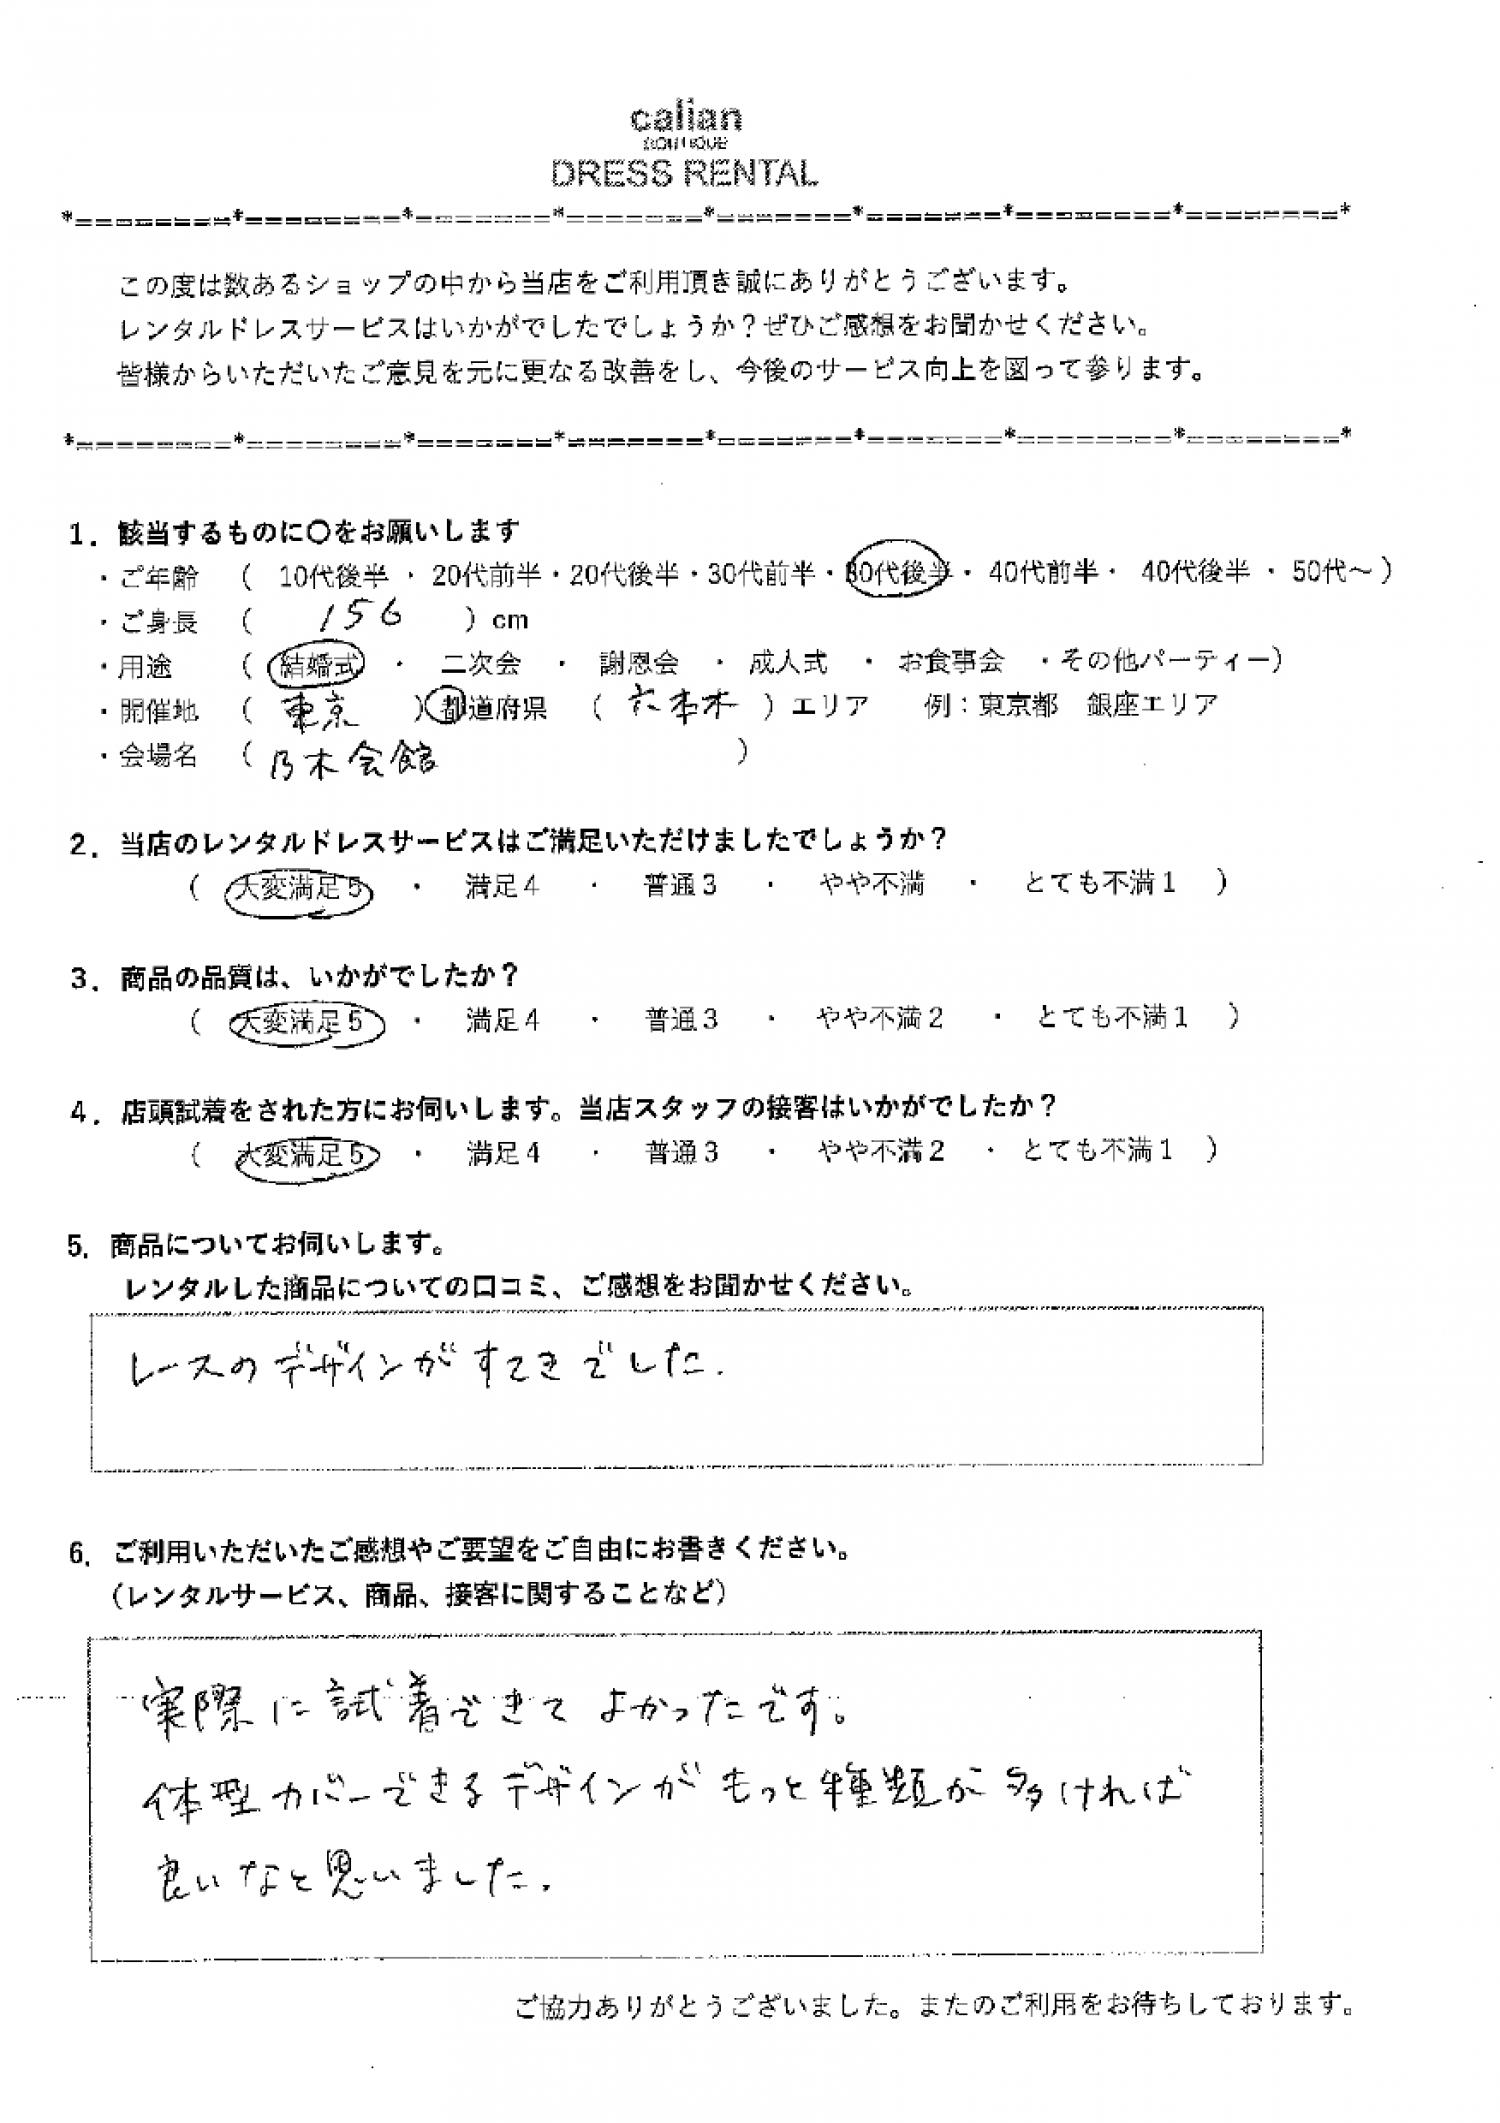 calian
BOUTIQUE
DRESS RENTAL
*========*========*=======*=======*=======*=======*========*========*
この度は数あるショップの中から当店をご利用頂き誠にありがとうございます。
レンタルドレスサービスはいかがでしたでしょうか？ぜひご感想をお聞かせください。
皆様からいただいたご意見を元に更なる改善をし、今後のサービス向上を図って参ります。
*========*========*=======*=======*=======*=======*========*========*
1．該当するものに〇をお願いします
・ご年齢 （ 10代後半 ・ 20代前半・20代後半・30代前半・30代後半・ 40代前半・ 40代後半 ・ 50代～）
・ご身長 （ 156 ）cm
・用途 （ 結婚式 ・ 二次会 ・ 謝恩会 ・ 成人式 ・ お食事会 ・その他パーティー）
・開催地 （ 東京 ）都道府県 （ 六本木 ）エリア 例：東京都 銀座エリア
・会場名 （ 乃木会館 ）
2．当店のレンタルドレスサービスはご満足いただけましたでしょうか？
（ 大変満足5 ・ 満足4 ・ 普通3 ・ やや不満 ・ とても不満1 ）
3．商品の品質は、いかがでしたか？
（ 大変満足5 ・ 満足4 ・ 普通3 ・ やや不満2 ・ とても不満1 ）
4．店頭試着をされた方にお伺いします。当店スタッフの接客はいかがでしたか？
（ 大変満足5 ・ 満足4 ・ 普通3 ・ やや不満2 ・ とても不満1 ）
5．商品についてお伺いします。
レンタルした商品についての口コミ、ご感想をお聞かせください。
レースのデザインがすてきでした.
6．ご利用いただいたご感想やご要望をご自由にお書きください。
（レンタルサービス、商品、接客に関することなど）
実際に試着できてよかったです。
体型カバーできるデザインがもっと種類が多ければ
良いなと思いました.
ご協力ありがとうございました。またのご利用をお待ちしております。